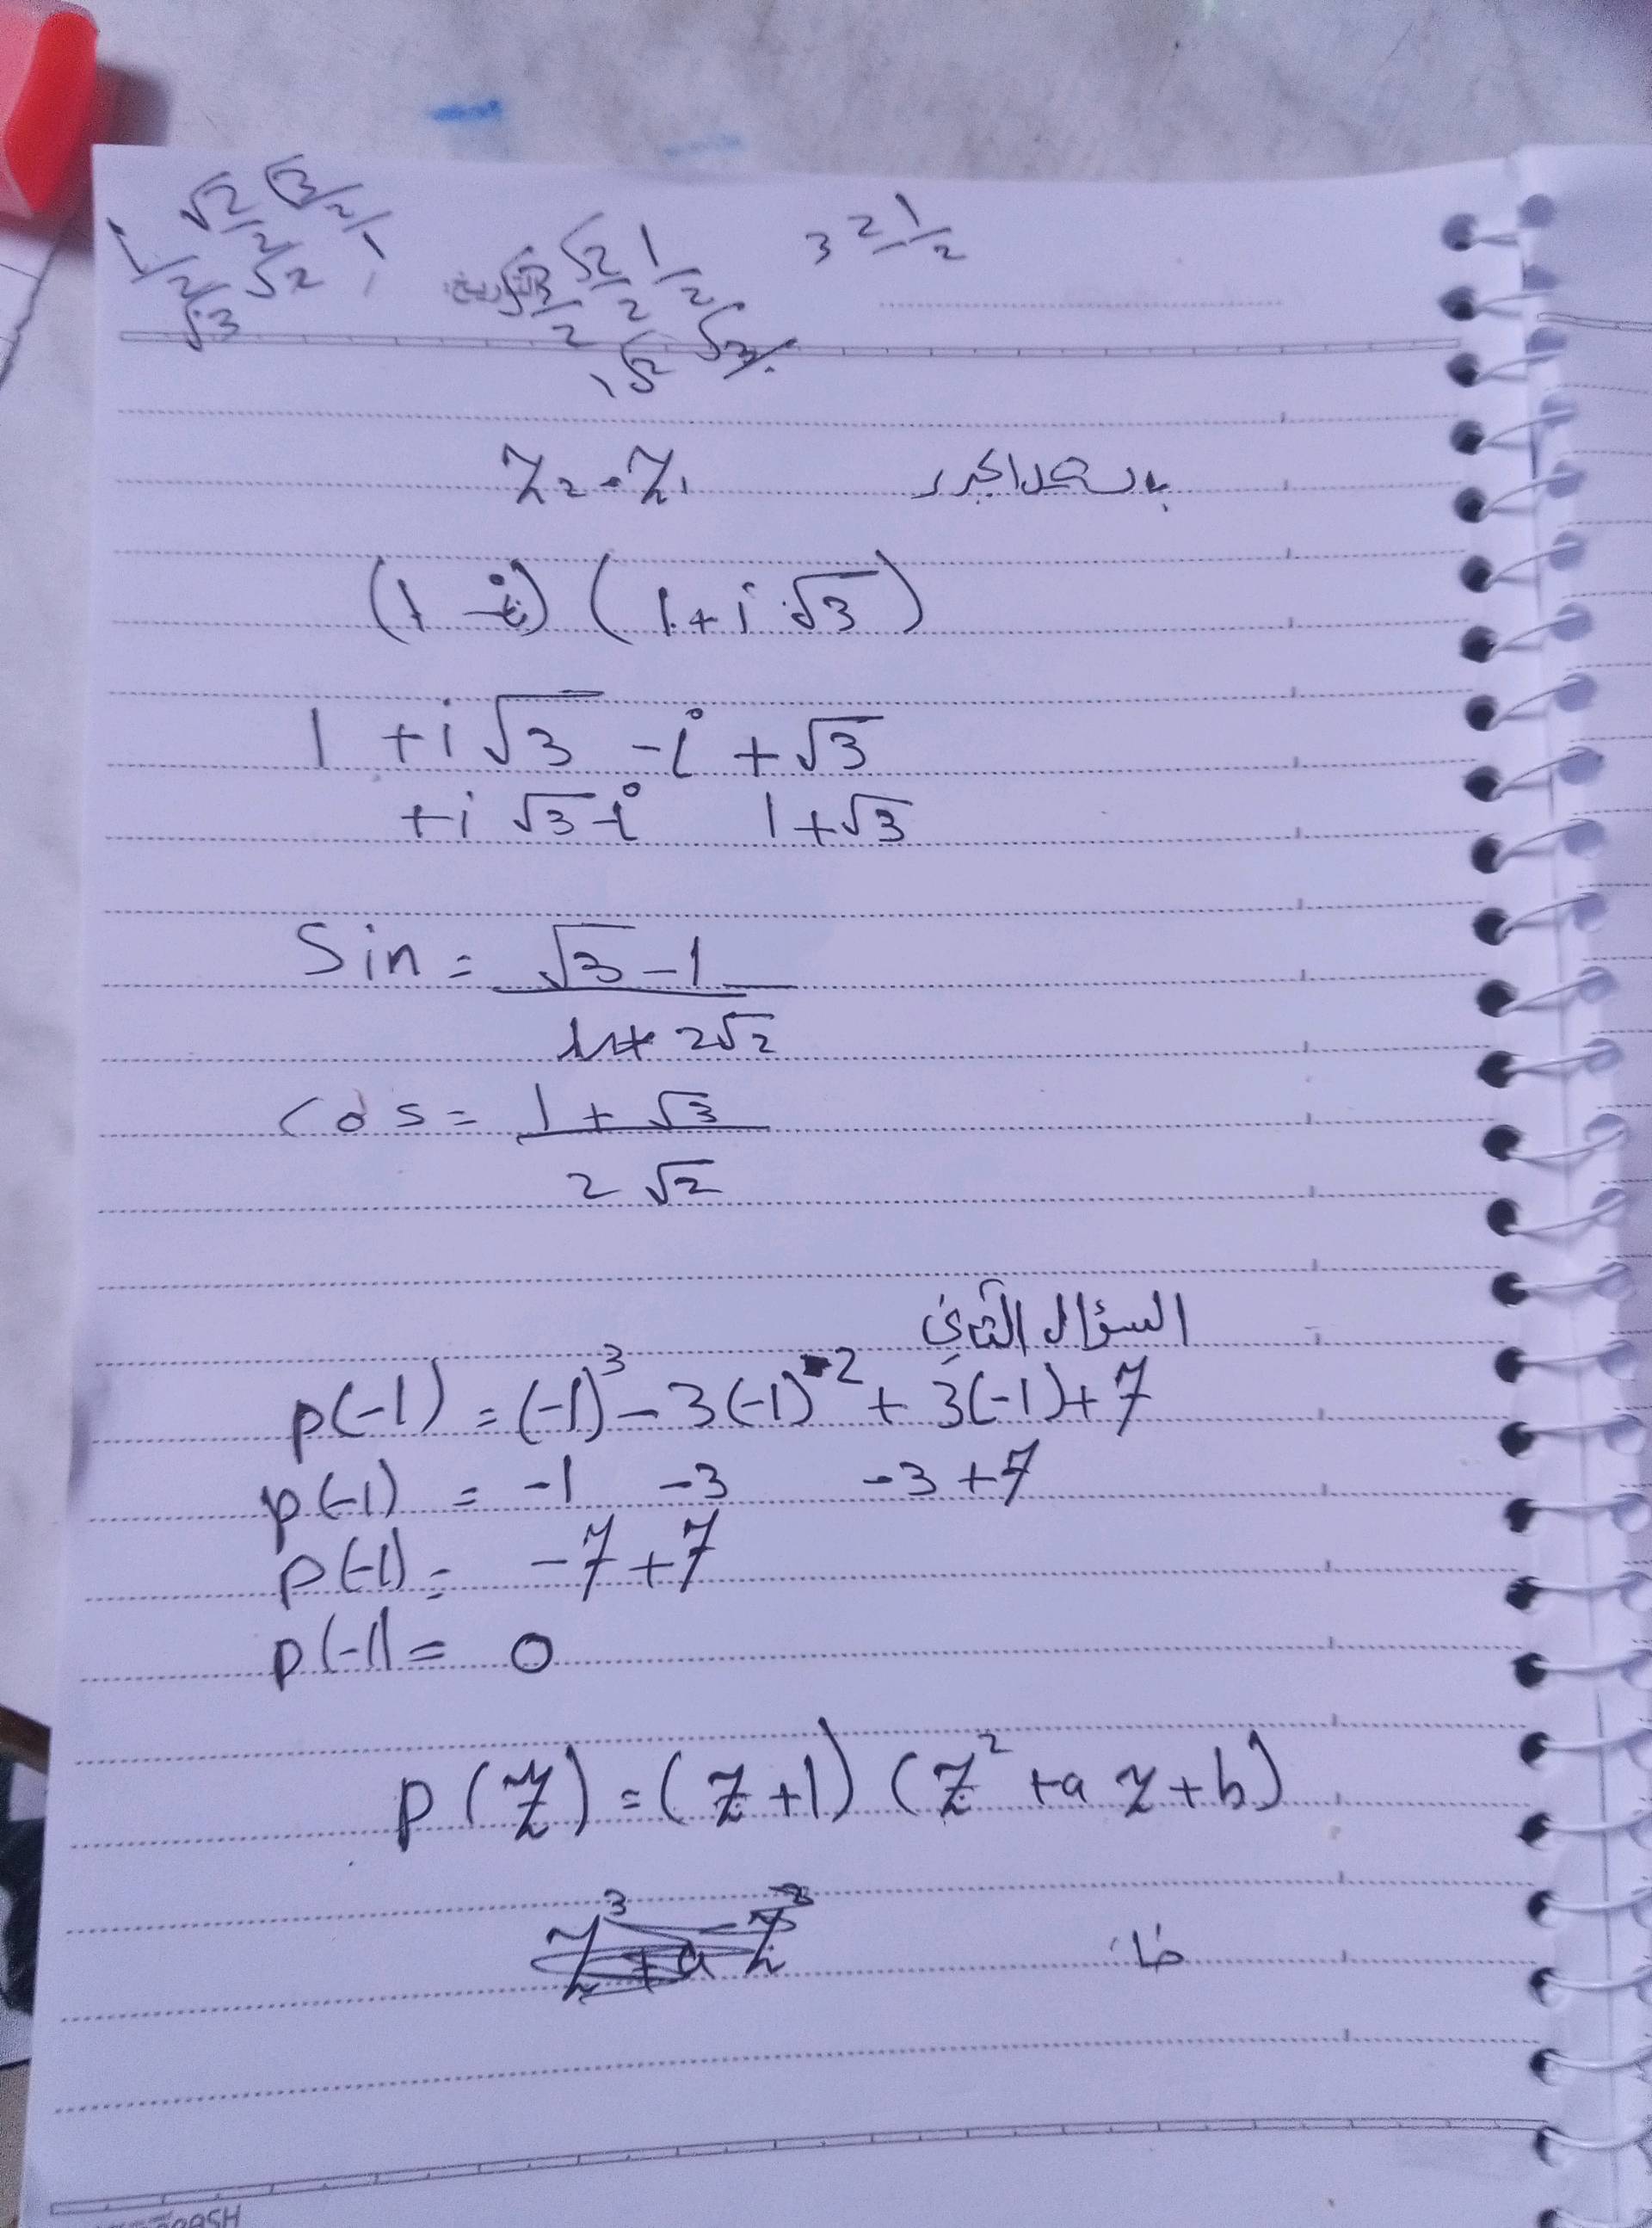 1/2 √2/2 √3/2 1
√3 √2 1
التاريخ: √3/2 √2/2 1/2
1 √2 √3
3 2 1/2
Z₂ · Z₁ بالشكل الجبري
(1 - i) (1 + i √3)
1 + i √3 - i + √3
+ i √3 - i 1 + √3
Sin = √3 - 1
2√2
Cos = 1 + √3
2 √2
السؤال الثاني
p(-1) = (-1)³ - 3(-1)² + 3(-1) + 7
p(-1) = -1 -3 -3 + 7
p(-1) = -7 + 7
p(-1) = 0
p(Z) = (Z + 1) (Z² + a Z + b)
Z³ + a Z²